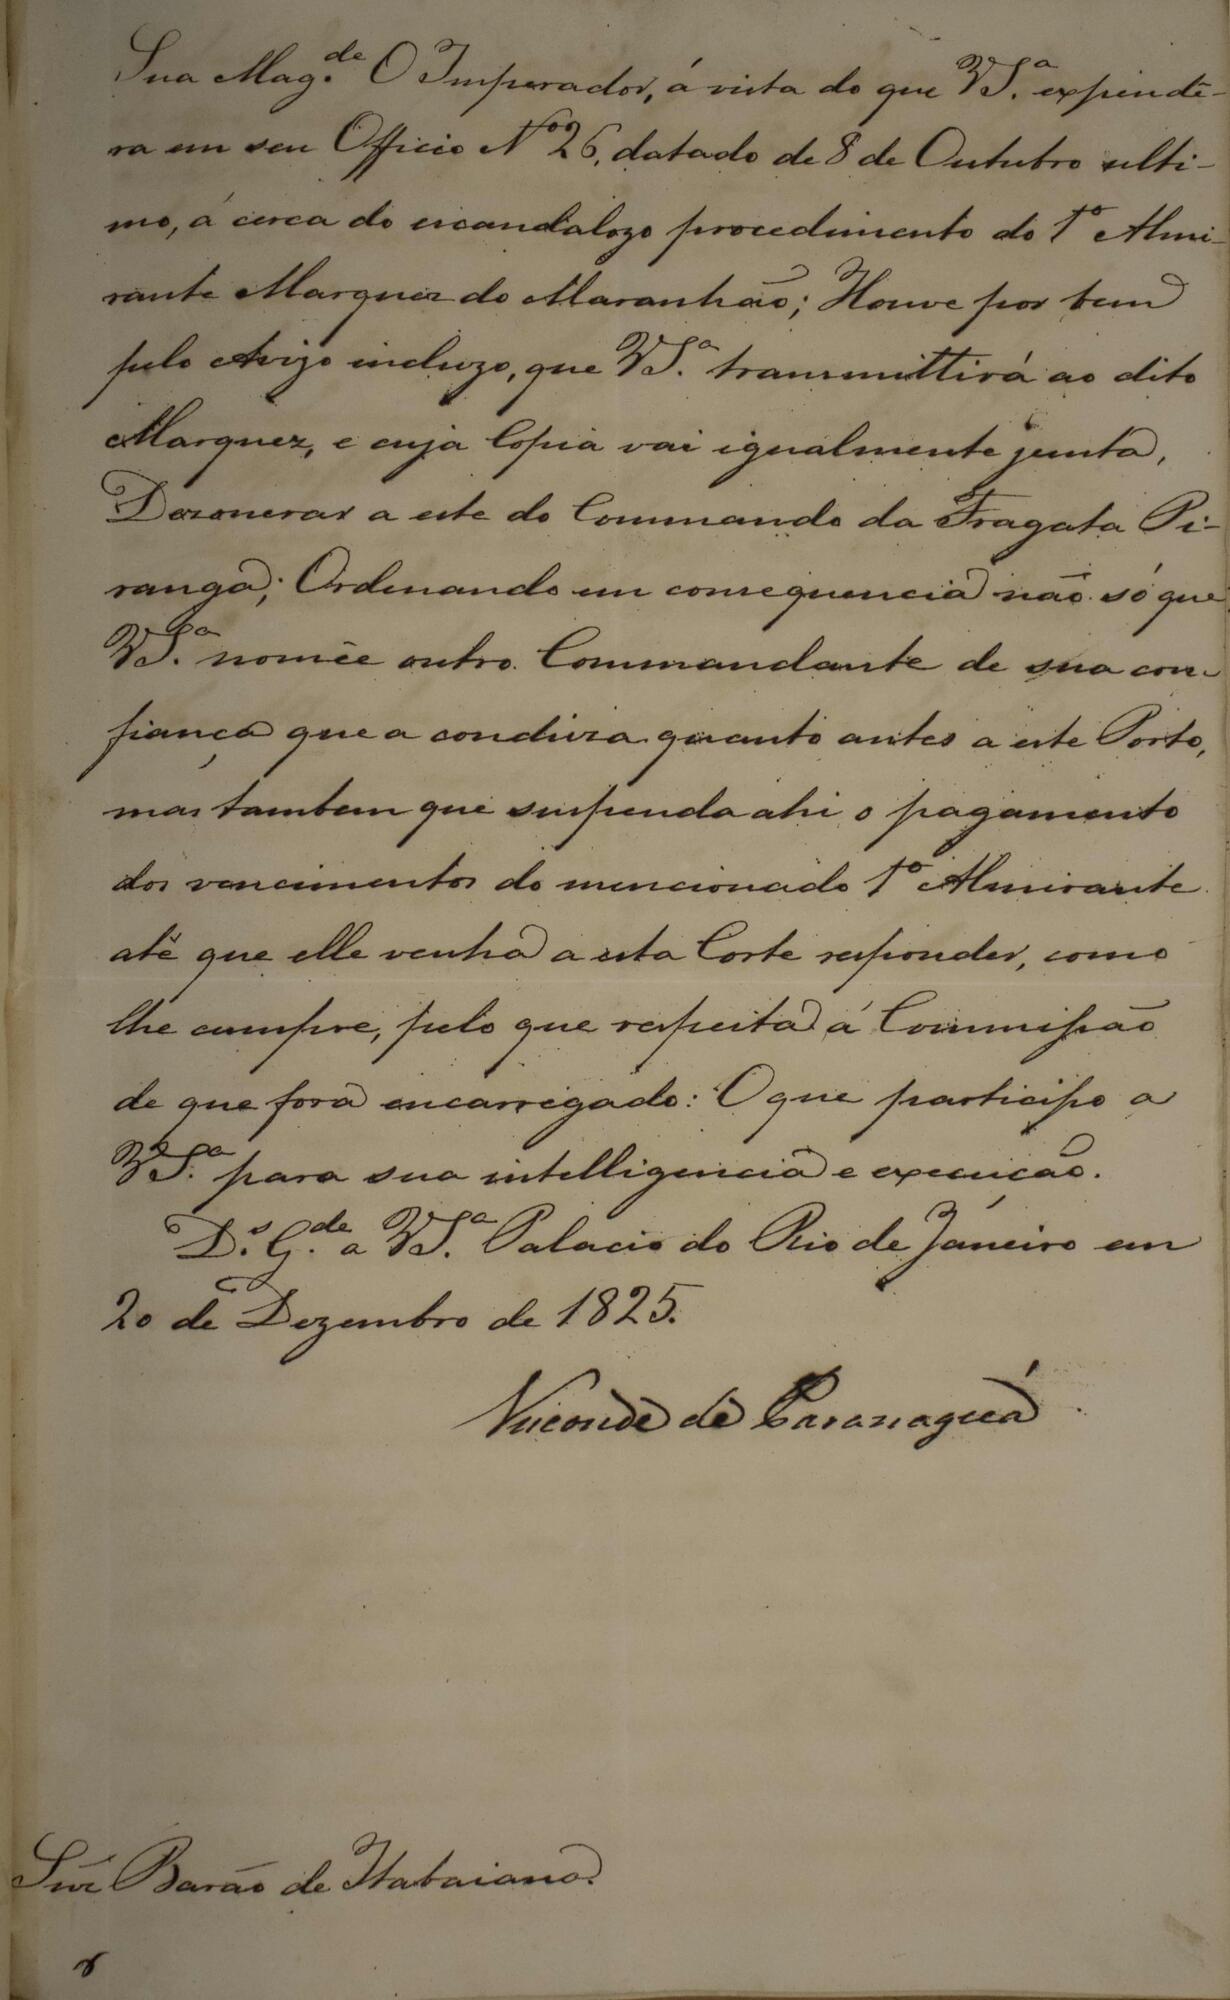 Sua Mag.de O Imperador, á vista do que VS.a expendê-
ra em seu Officio Nº 26, datado de 8 de Outubro ulti-
mo, á cerca do escandalozo procedimento do 1º Almi-
rante Marquez do Maranhão; Houve por bem
pelo Avizo incluzo, que VS.a transmittirá ao dito
Marquez, e cuja Copia vai igualmente junta,
Dezonerar a este do Commando da Fragata Pi-
ranga; Ordenando em consequencia não só que
VS.a nomêe outro Commandante de sua con-
fiança que a conduza quanto antes a este Porto,
mas tambem que suspenda ahi o pagamento
dos vencimentos do mencionado 1º Almirante
até que elle venha a esta Corte responder, como
lhe cumpre, pelo que respeita á Commissão
de que fora encarregado: O que participo a
VS.a para sua intelligencia e execução.
D.s G.de a VS.a Palacio do Rio de Janeiro em
20 de Dezembro de 1825.
Visconde de Paranaguá
Snr Barão de Itabaiana.